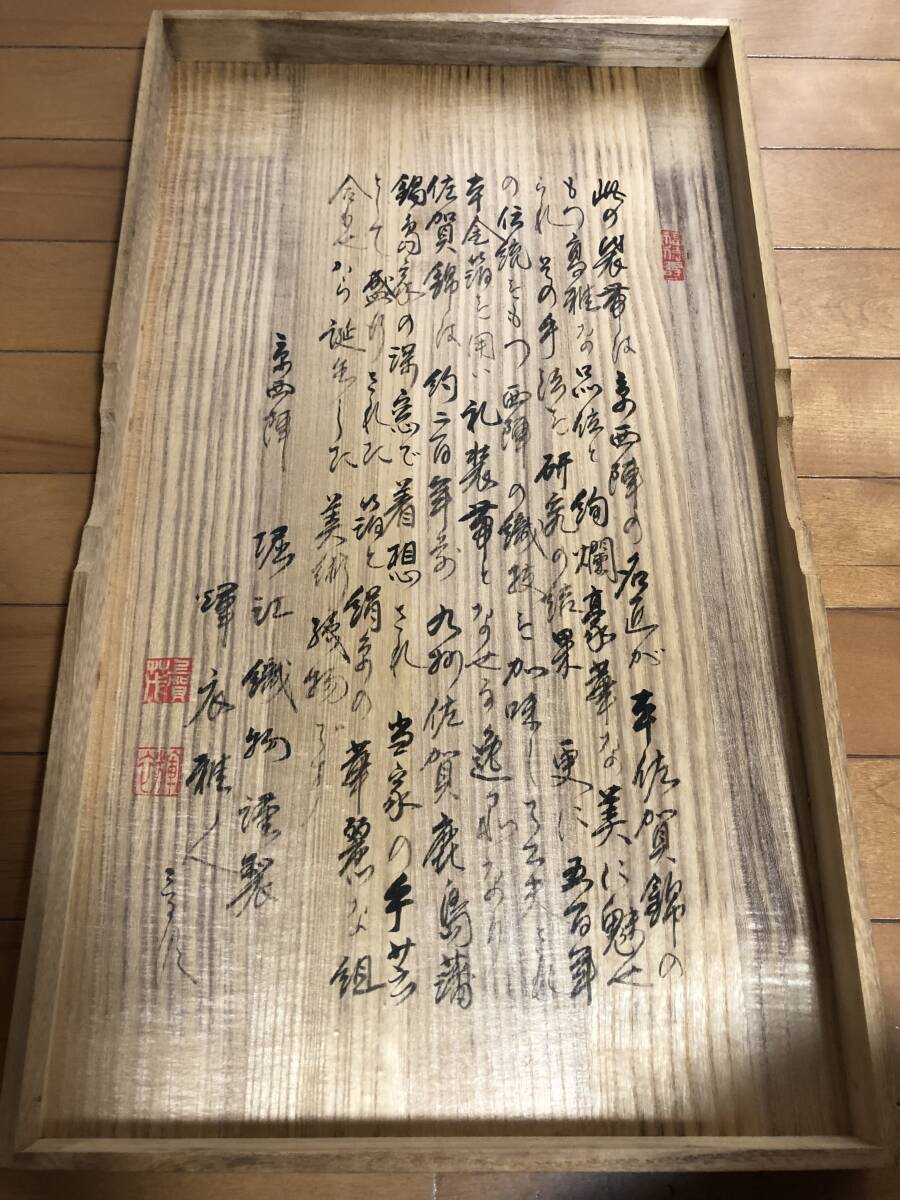 此の袋帯は京西陣の名匠が本佐賀錦の
もつ高雅な品位と絢爛豪華な美に魅せ
られその手法を研究の結果 更に五百年
の伝統をもつ西陣の織技を加味して
本金箔を用い礼装帯となせる逸品なり
佐賀錦は約二百年前九州佐賀鹿島藩
鍋島家の深窓で着想され 当家の手芸
として盛行された箔と絹糸の華麗な組
合わせから誕生した美術織物です
京西陣
堀江織物謹製
輝衣